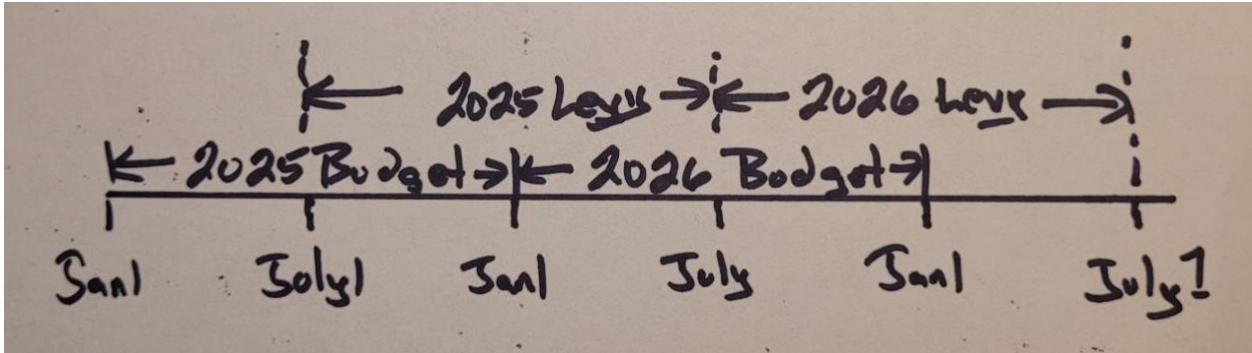 2025 Levy 2026 Levy
2025 Budget 2026 Budget
Jan1 July1 Jan1 July Jan1 July1